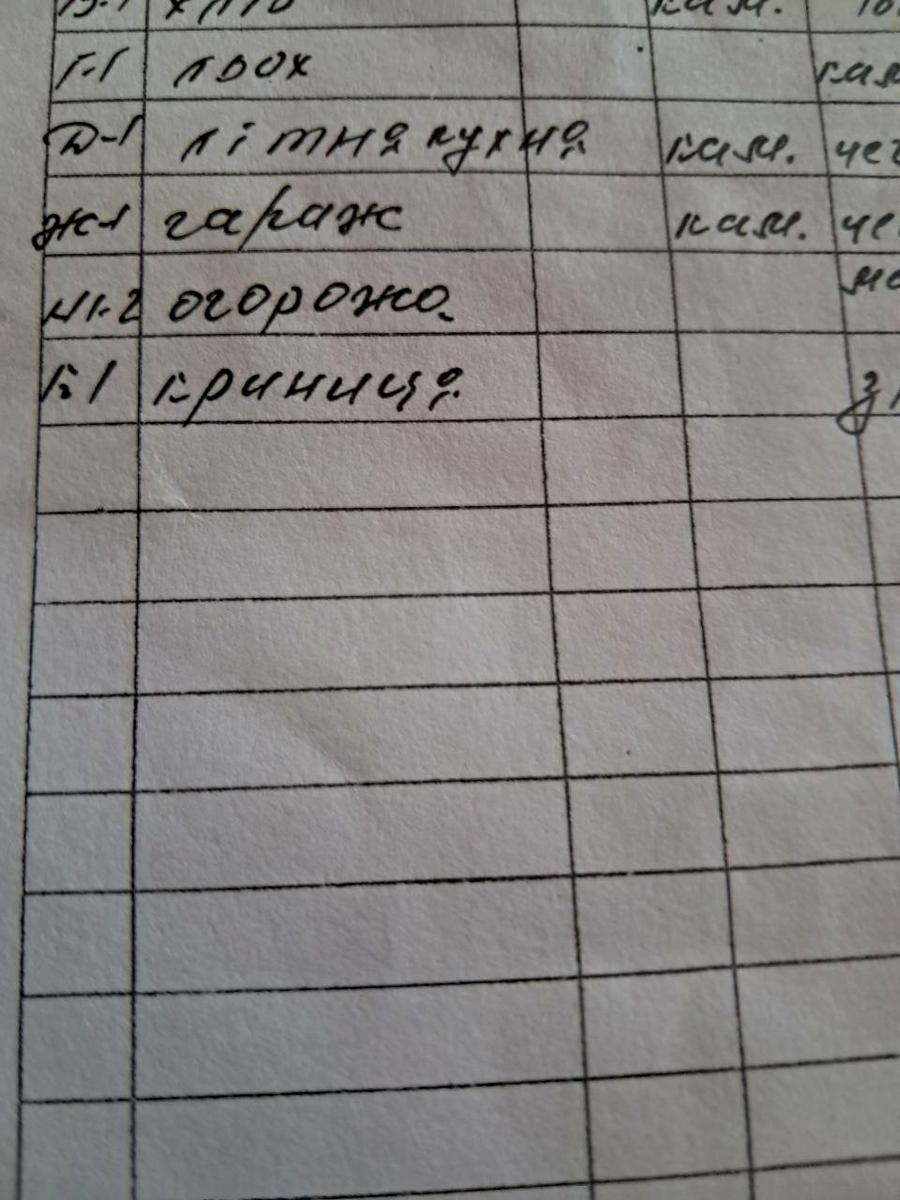 В-1 хлів кам.
Г-1 льох кам
Д-1 літня кухня кам. чег
Ж-1 гараж кам. че
№1-2 огорожа
К1 криниця з